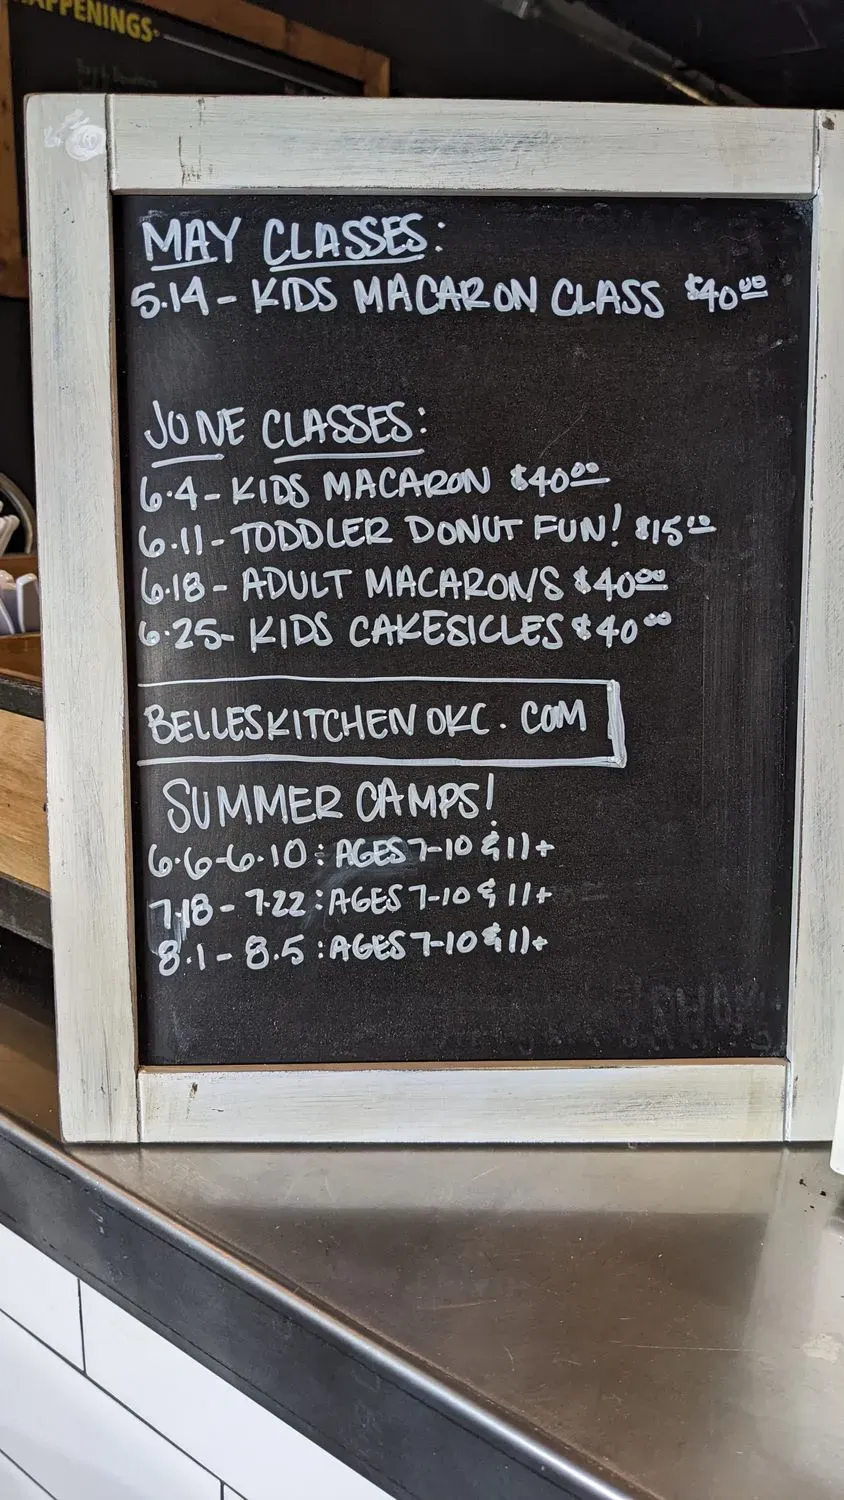 APPENINGS-
MAY CLASSES:
5.14 - KIDS MACARON CLASS $40.00
JUNE CLASSES:
6.4 - KIDS MACARON $40.00
6.11 - TODDLER DONUT FUN! $15.00
6.18 - ADULT MACARONS $40.00
6.25 - KIDS CAKESICLES $40.00
BELLESKITCHENOKC.COM
SUMMER CAMPS!
6.6-6.10: AGES 7-10 & 11+
7.18 - 7.22: AGES 7-10 & 11+
8.1 - 8.5: AGES 7-10 & 11+